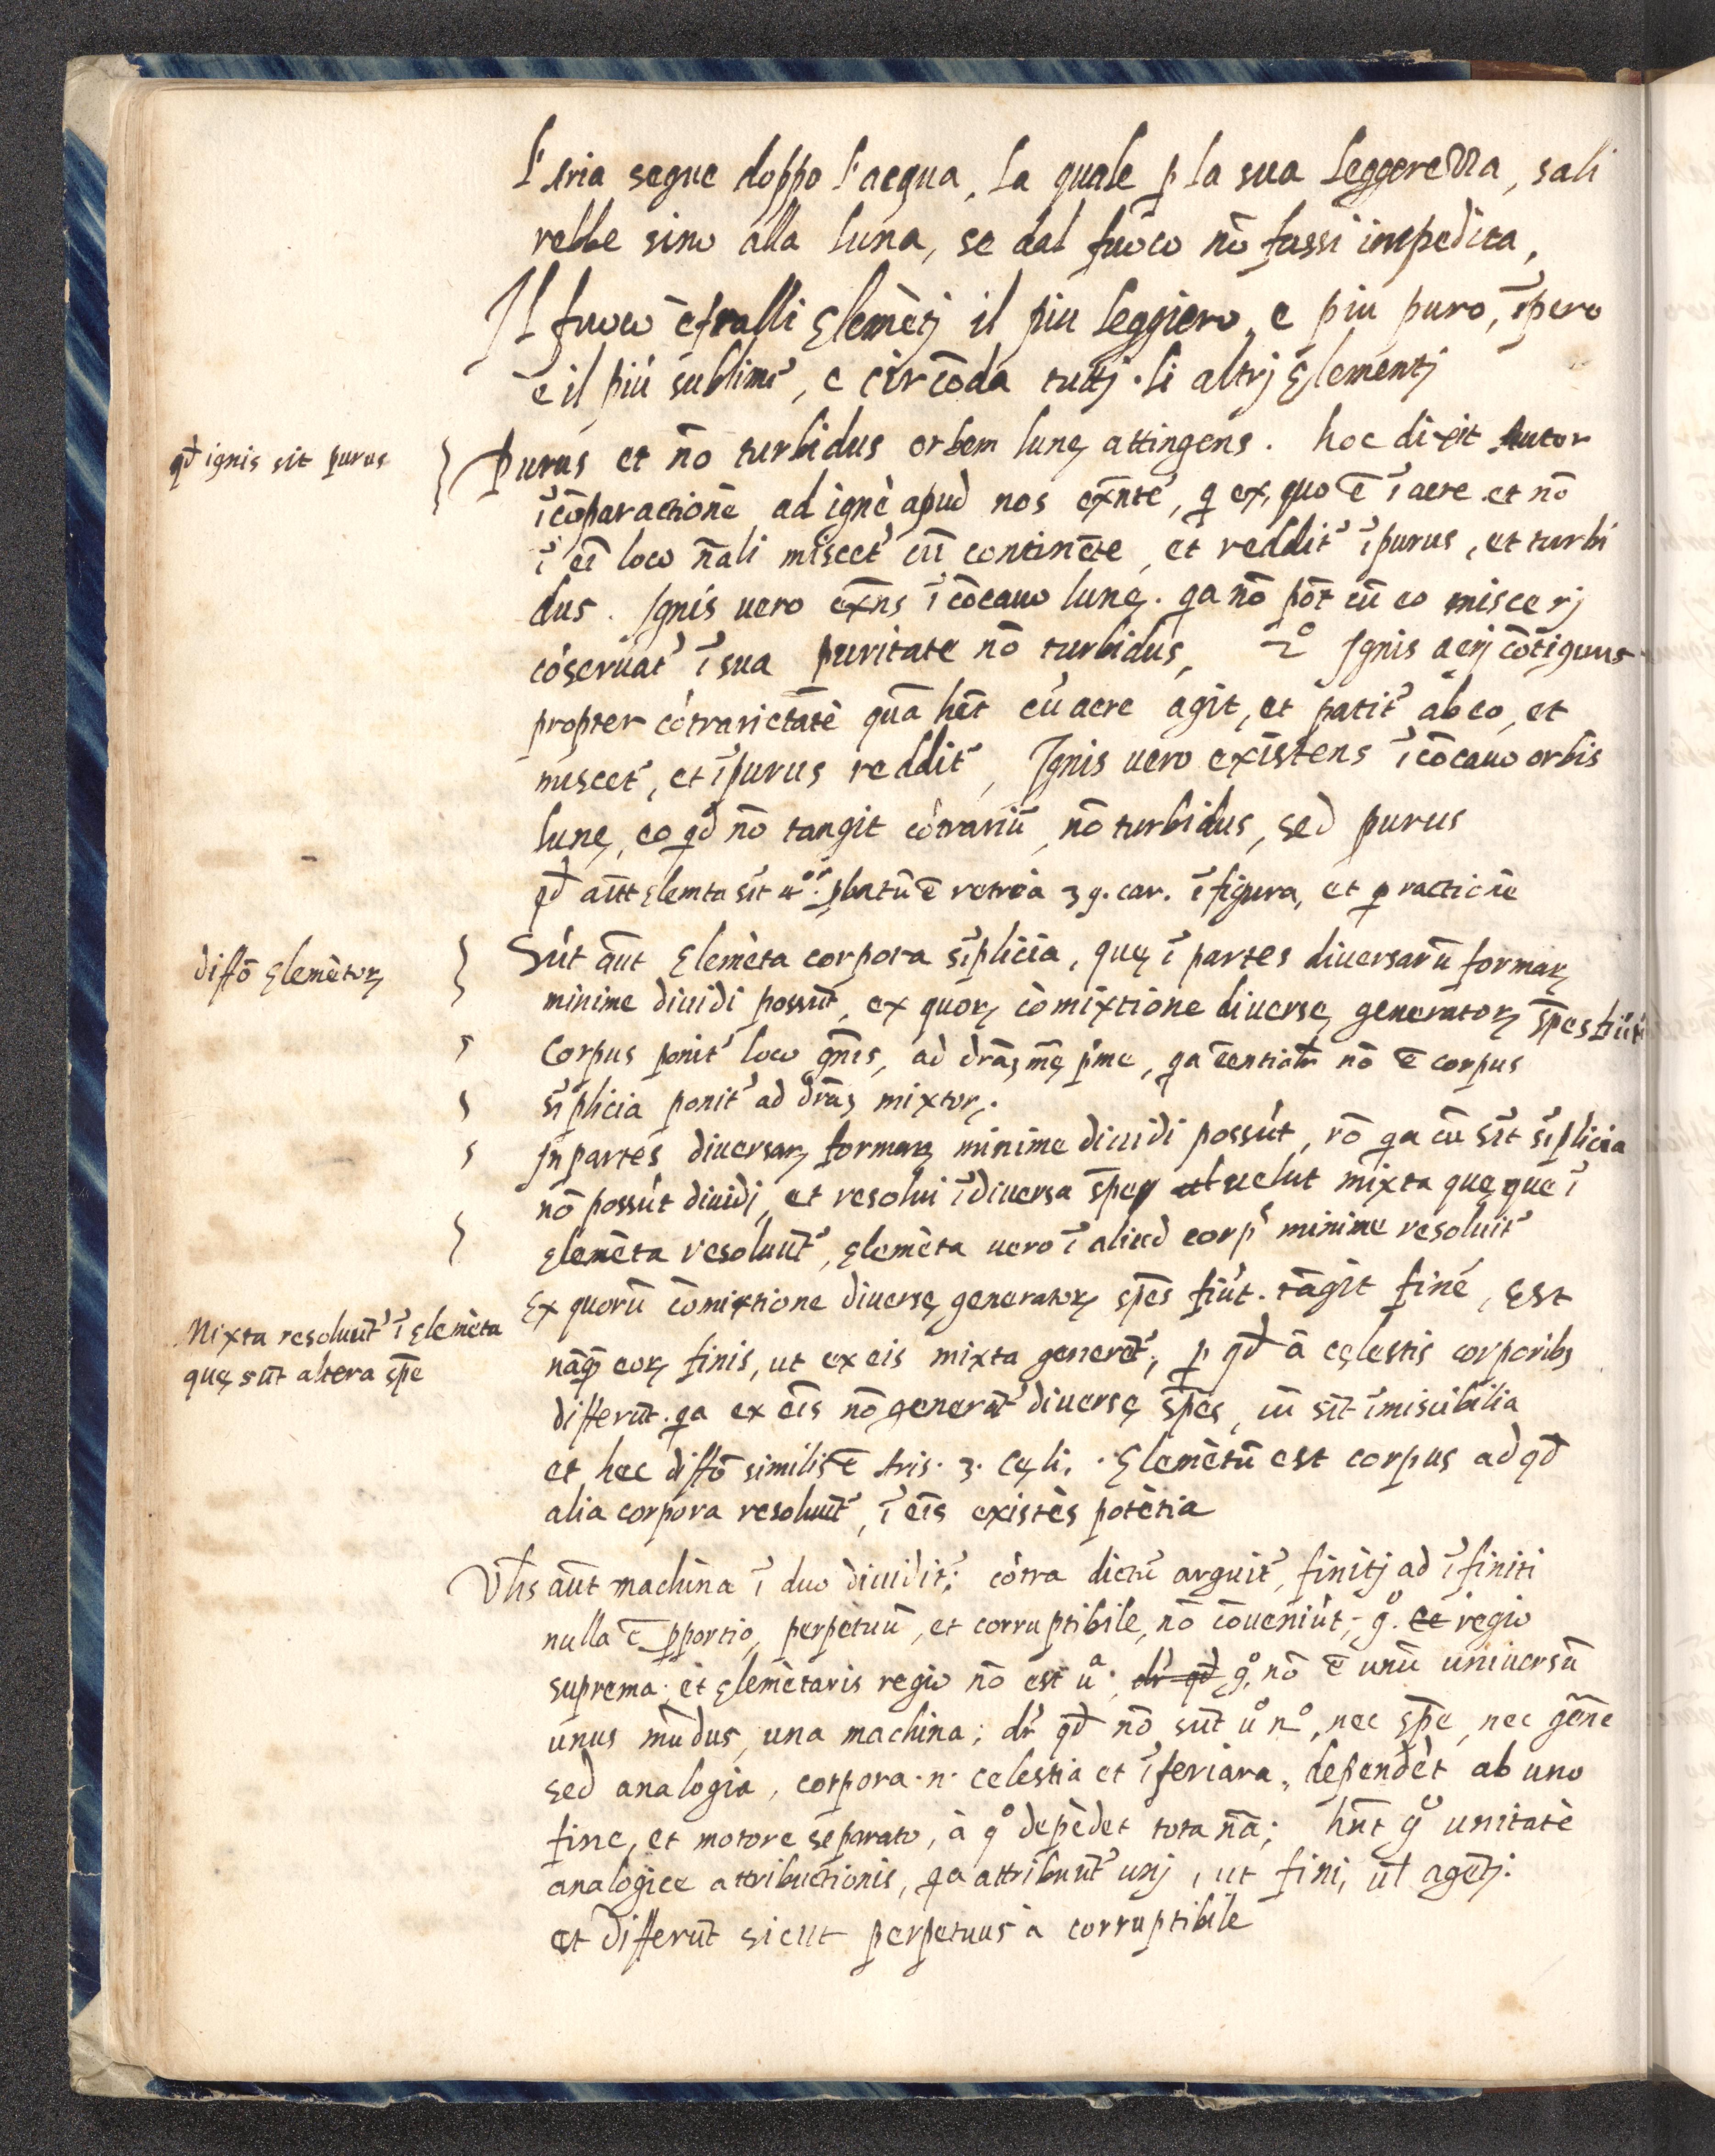 l'Aria segue doppo l'acqua, la quale p la sua leggerezza, sali
rebbe sino alla luna, se dal fuoco nō fassi impedita,
Il fuoco è fralli Elemētj il piu leggiero, e piu puro, īpero
è il piú sublime, e circōda tuttj li altrj Elementj
qđ ignis sit purus
Purus et nō turbidus orbem lunę attingens. hoc dixit Autor
ī cōparactionē ad ignē apud nos exn̄te, q ex quo ē ī aere et nō
ī eī loco n̄ali miscet' cū continēte, et reddit' īpurus, et turbi
dus. Ignis uero exn̄s ī cōcauo lunę. qa nō pōt cū eo miscerj
cōseruat' ī sua puritate nō turbidus, 2° Ignis aerj cōtiguus
propter cōtrarietatē quā hēt cū aere agit, et patit' ab eo, et
miscet', et īpurus reddit', Ignis uero existens ī cōcauo orbis
lunę, eo qđ nō tangit cōtrariū, nō turbidus, sed purus
qđ aūt Elemta sīt 4or. pbatū ē retroa 39. car. ī figura, et p ractionē
diffō Elemētoꝝ
Sūt aūt Elemēta corpora sīplicia, quę ī partes diuersarū formaꝝ
minime diuidi possūt, ex quoꝝ cōmixtione diuersę generatoꝝ spēs fiūt
Corpus ponit' loco gn̄is, ad drāȝ mę p'me, qa ēentialr nō ē corpus
sīplicia ponit' ad drāȝ mixtoꝝ.
In partes diuersaꝝ formaꝝ minime diuidi possūt, rō qa cū sīt sīplicia
nō possūt diuidj, et resolui ī diuersa spē uelut mixta quę que ī
Elemēta resoluūt', Elemēta uero ī aliud corp' minime resoluūt'
Ex quorū cōmixtione diuersę generatoꝝ spēs fiūt. tāgit finē, Est
Mixta resoluūt' ī Elemēta
quę sūt altera spē
nāq eoꝝ finis, ut ex eis mixta generēt', p qđ ā cęlestis corporibȝ
differūt. qa ex eīs nō generāt' diuersę spēs, cū sīt īmiscibilia
et hec diffō similis ē Aris. 3. Cęli. Elemētū est corpus ad qđ
alia corpora resoluūt', ī eīs existēs potētia
Vlis aūt machina ī duo diuidit'; cōtra dictū arguit', finitj ad īfiniti
nulla ē pportio, perpetuū, et corruptibile, nō cōueniūt; g°. regio
suprema. et Elemētaris regio nō est ua; g°, nō ē unū uniuersū
unus mūdus, una machina; dr qđ nō sūt u° n°, nec spē, nec gēne
sed analogia, corpora .n. celestia et īferiora, dependēt ab uno
fine, et motore separato, à q° depēdet tota nā; hn̄t g° unitatē
analogice attributionis, qa attribuūt' unj, ut fini, ul agētj.
et differūt sicut perpetuus à corruptibile